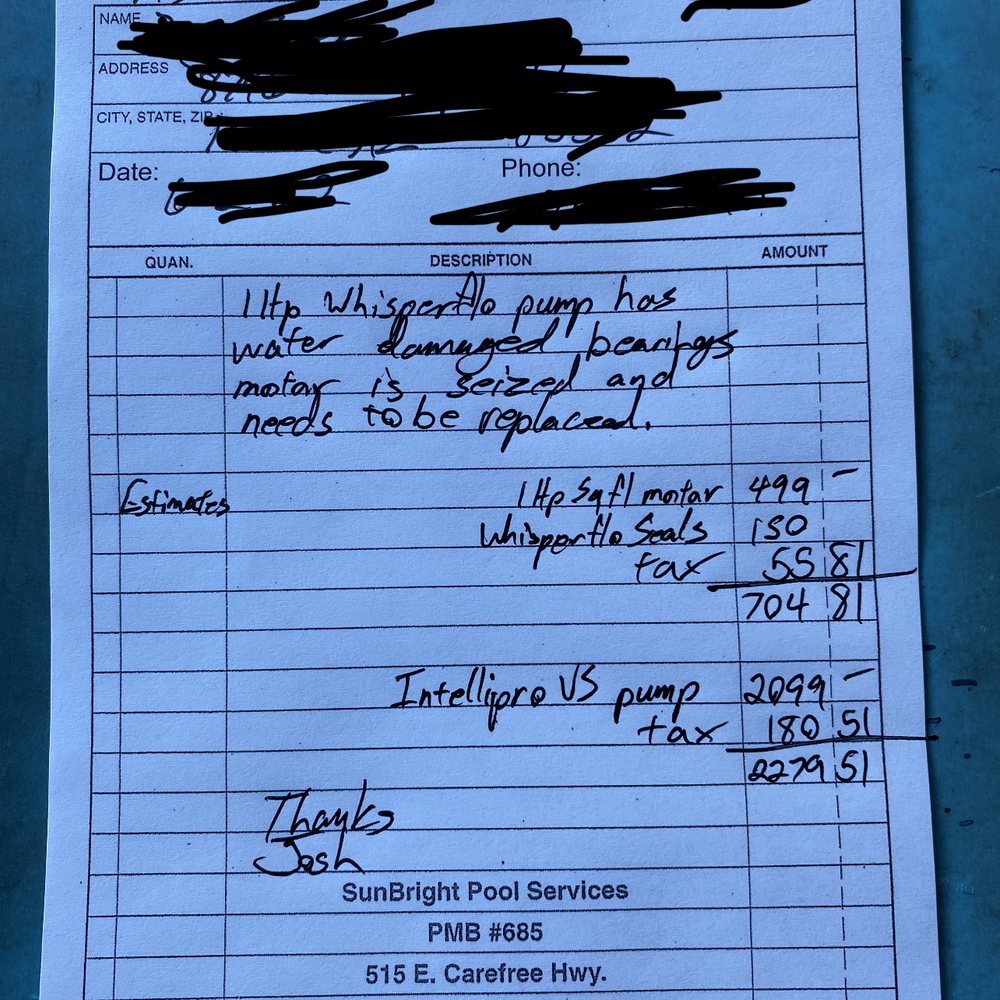 NAME
ADDRESS
CITY, STATE, ZIP
Date: Phone:
QUAN. DESCRIPTION AMOUNT
1 Hp Whisperflo pump has
water damaged bearings
motor is seized and
needs to be replaced.
Estimates 1 Hp Sqfl motor 499 -
Whisperflo Seals 150
tax 55 81
704 81
Intellipro VS pump 2099 -
tax 180 51
2279 51
Thanks
Josh
SunBright Pool Services
PMB #685
515 E. Carefree Hwy.